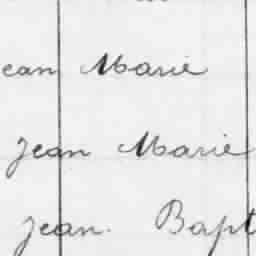 ean Marie
Jean Marie
Jean. Bapt